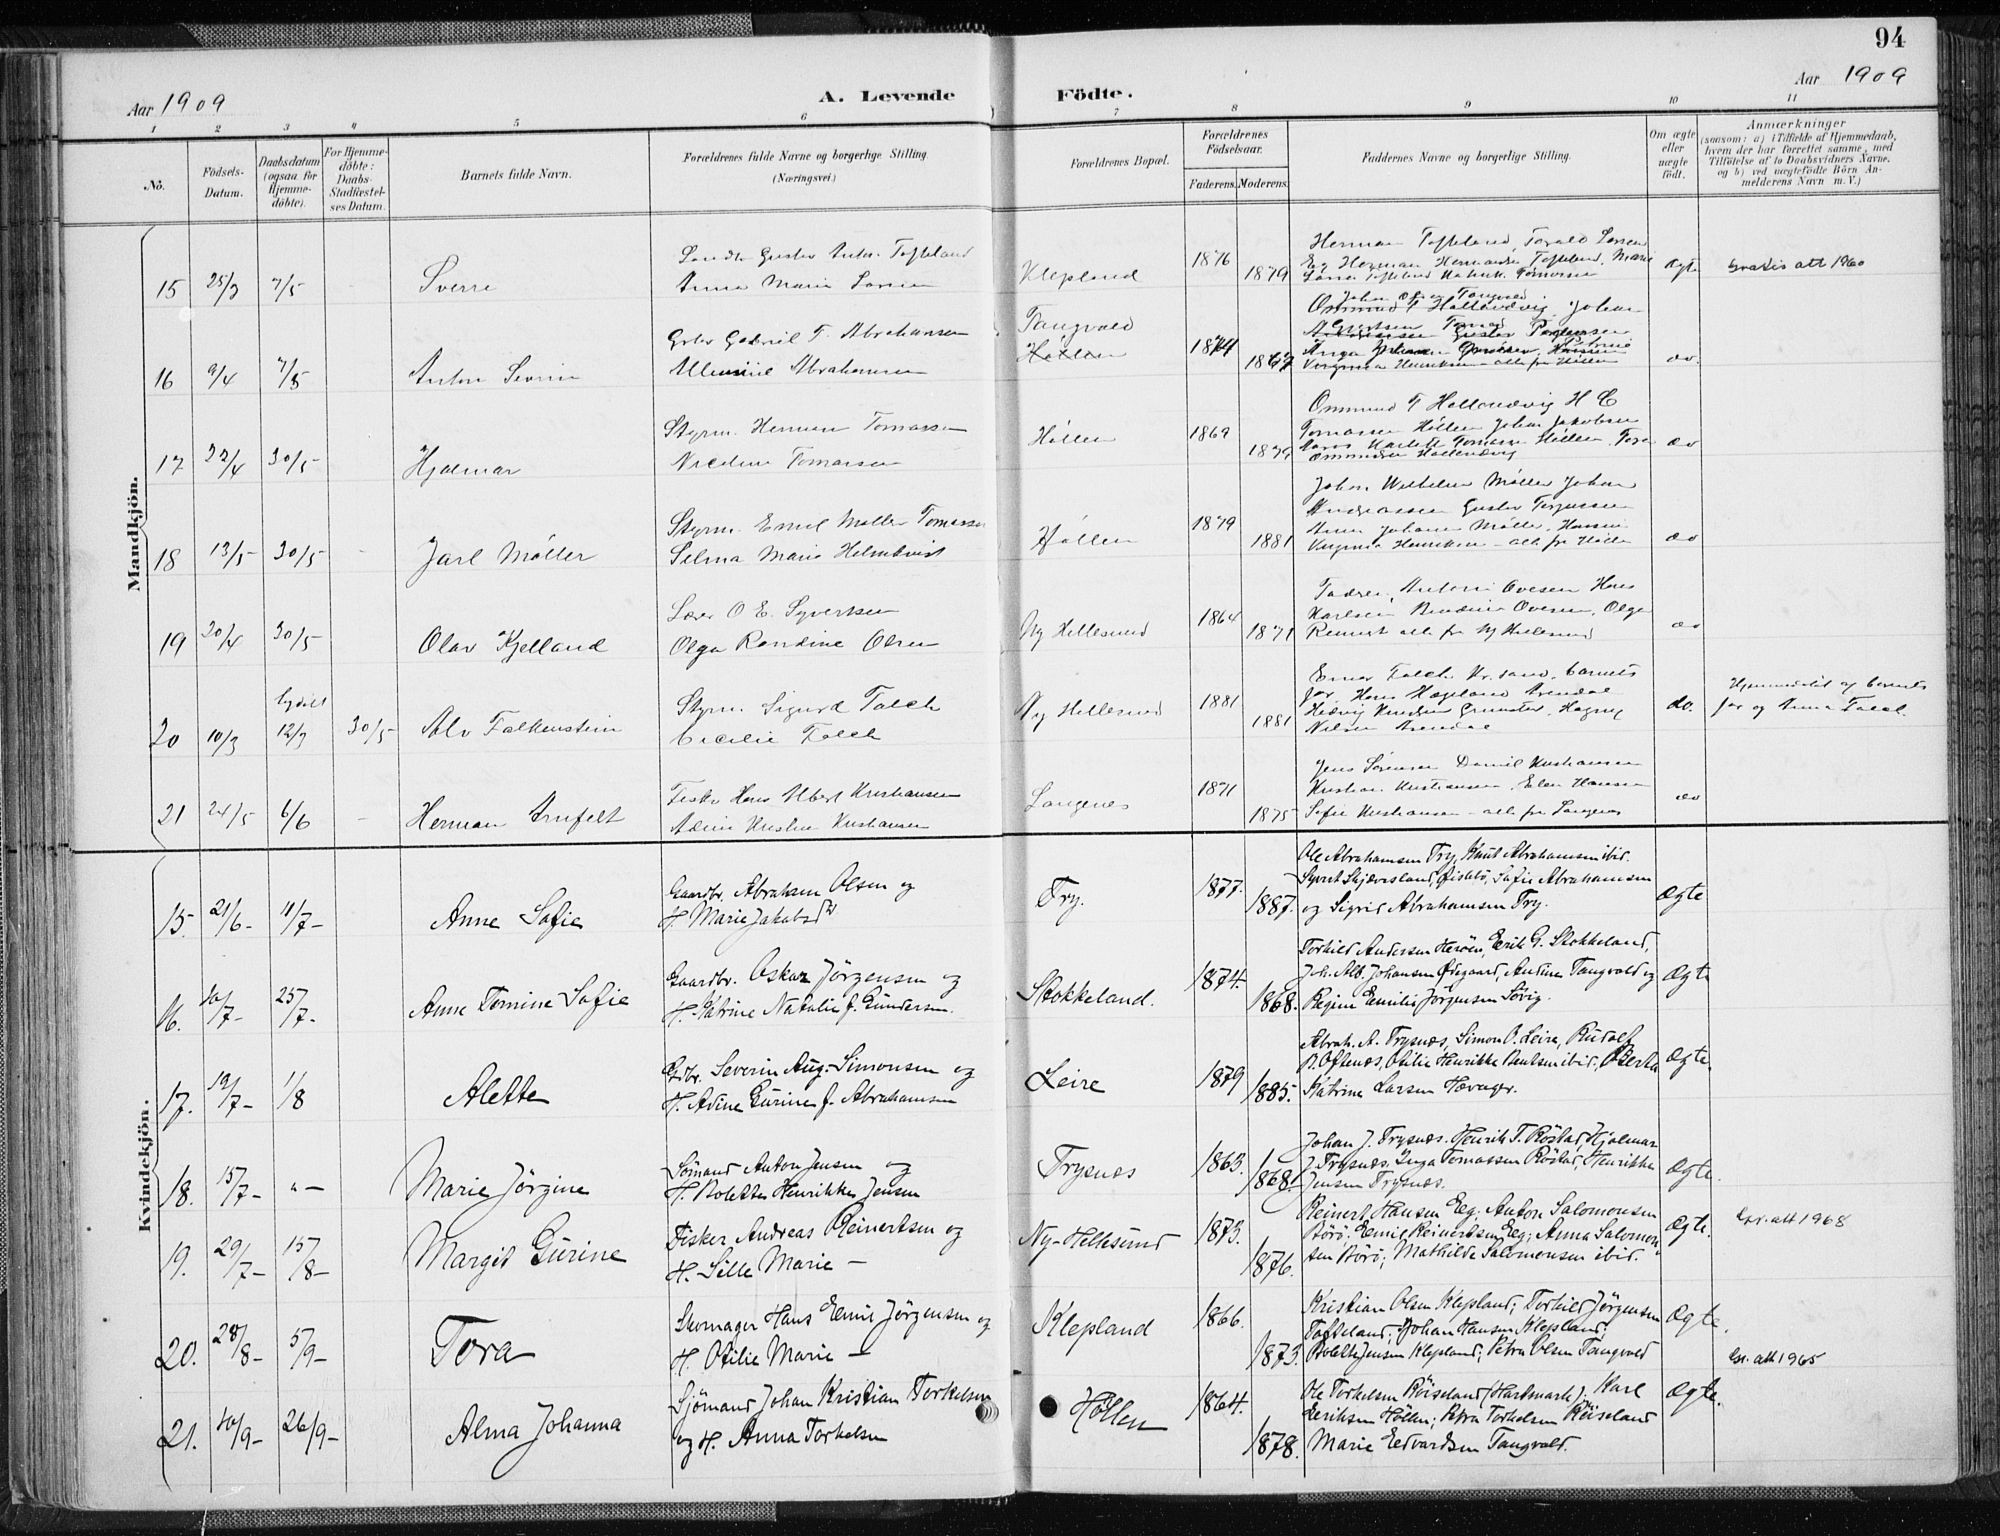 94
Aar 1909
A. Levende Födte.
Aar 1909
1 2 3 4 5 6 7 8 9 10 11
No.
Födsels-Datum.
Daabsdatum (ogsaa for Hjemme-döbte).
For Hjemme-döbte: Daabs-Stadfæstel-ses Datum.
Barnets fulde Navn.
Forældrenes fulde Navne og borgerlige Stilling (Næringsvei.)
Forældrenes Bopæl.
Forældrenes Födselsaar.
Faderens. Moderens.
Faddernes Navne og borgerlige Stilling.
Om ægte eller uægte födt.
Anmærkninger
(saasom: a) i Tilfælde af Hjemmedaab,
hvem der har forrettet samme, med
Tilföielse af to Daabsvidners Navne.
og b) ved uægtefödte Börn An-
melderens Navn m. V.)
Mandkjön.
15 25/3 7/5 - Sverre
Gustav Anton Tofteland
Anna Marie Larsen
Klepland 1876 1879
Herman Tofteland, Torvald Larsen
Eg Herman Hermansen Tofteland, Marie
ægte
Gratis att 1960
16 9/4 7/5 Anton Severin
Gabriel T. Abrahamsen
Abrahamsen
Tangvald
Høllen
1874 1867
Ommund T Hallandvig Johan
Henriksen - alle fra Høllen
do.
17 22/4 30/5 Hjalmar
Styrm. Herman Tomassen
Tomassen
Høllen 1869 1879
Ommund T Hallandvig H C
Tomassen Høllen Johan Jakobsen
Tomassen Høllen, Tora
Ommundsen Hallandvig
do
18 13/5 30/5 - Jarl Møller
Styrm. Emil Møller Tomassen
Selma Marie Holmkvist
Høllen 1879 1881
Johan Wilhelm Møller Johan
Andreassen Gustav Terjussen
Johanne Møller, Hansine
Henriksen - alle fra Høllen
do
19 20/4 30/5 Olav Kjelland
O E. Syvertsen
Olga Randine Olsen
Ny Hellesund 1864 1871
Antoni Ovesen Hans
Karlsen Ovesen, Olga
alle fra Ny Hellesund
do
20 10/3 12/3 30/5 Alv Falkenstein
Styrm. Sigurd Falch
Cecilie Falch
Ny Hellesund 1881 1881
Einar Falch Kr.sand, barnets
far, Hans Hægeland Arendal
Hedvig Knudsen Grimstad, Hagny
Nilsen Arendal
do.
Hjemmedøbt af barnets
far og Anna Falch.
21 24/5 6/6 - Herman Arnfelt
Fisker Hans Albert Kristiansen
Kristine Kristiansen
Langenes 1871 1875
Jens Sørensen Daniel Kristiansen
Kristian Kristiansen, Elen Hansen
Sofie Kristiansen - alle fra Langenes
do
Kvindekjön.
15. 21/6 - 11/7 - Anne Sofie
Gaardbr. Abraham Olsen og
H. Marie Jakobsdtr
Try. 1877. 1887.
Ole Abrahamsen Try, Knut Abrahamsen ibid.
Syvert Skjævesland, Øislebö, Sofie Abrahamsen
og Sigrid Abrahamsen Try.
Ægte
16. 10/7 - 25/7 - Anne Tomine Sofie
Gaardbr. Oskar Jörgensen og
H. Katrine Natalie f. Gundersen.
Stokkeland. 1874. 1868.
Torkild Andersen Herøen, Eerik G. Stokkeland,
Joh. Alb. Johansen Ødegaard, Andrea Tangvald og
Regine Eemilie Jörgensen Sövig.
Ægte
17. 19/7 - 1/8 Alette
Gdbr. Severin Aug. Simonsen og
H. Adine Gurine f. Abrahamsen
Leire 1879 1885.
Abrah. A. Trysnæs, Simon O. Leire, Rudolf
B. Oftenæs, Otilie Henrikke Bentsen ibid., Berta
Katrine Larsen Hævager.
Ægte.
18. 15/7 - " - Marie Jörgine
Sömand Anton Jensen og
H. Bolette Henrikke Jensen
Trysnæs 1863. 1868.
Johan J. Trysnæs. Henrik T. Röstad, Hjalmar
J. Trysnæs, Inga Tomassen Röstad, Henrikke
Jensen Trysnæs.
Ægte.
19. 29/7 - 15/8 - Margit Gurine
Fisker Andreas Reinertsen og
H. Sille Marie -
Ny-Hellesund 1873. 1876.
Reinert Hansen Eeg; Anton Salomonsen
Börö; Eemil Reinertsen Eeg; Anna Salomon-
sen Börö; Mathilde Salomonsen ibid.
Ægte.
Gr. att 1968
20. 28/8 - 5/9 - Tora
Skomager Hans Eemil Jörgensen og
H. Otilie Marie -
Klepland 1866. 1873.
Kristian Olsen Klepland; Torkild Jörgensen
Tofteland; Johan Hansen Klepland;
Bolette Jensen Klepland; Petra Olsen Tangvald
Ægte.
21. 10/9 - 26/9 - Alma Johanna
Sjömand Johan Kristian Torkelsen
og H. Anna Torkelsen
Höllen 1864. 1878.
Ole Torkelsen Röiseland (Hartmark); Karl
Eeriksen Höllen; Petra Torkelsen Röiseland
Marie Eedvardsen Tangvald.
Ægte.
Gr. att 1965